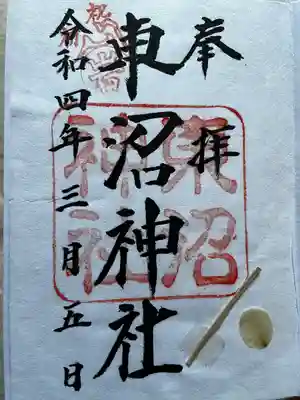 奉拝
東沼神社
東沼
神社
令和四年三月五日